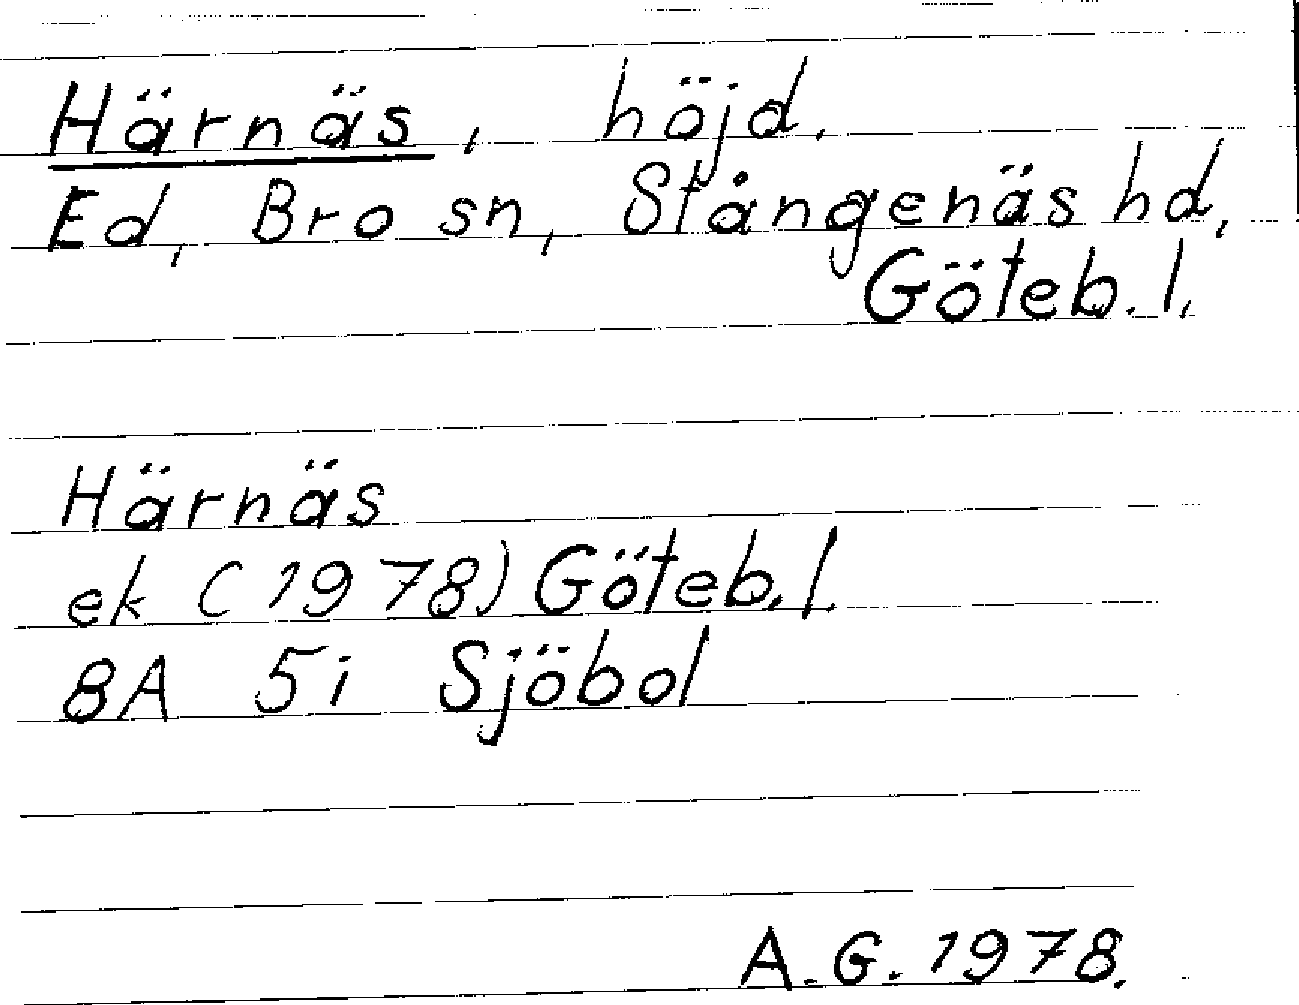 Härnäs, höjd.
Ed, Bro sn, Stångenäs hd,
Göteb. l.
Härnäs
ek (1978) Göteb. l.
8A 5i Sjöbol
A.G. 1978.